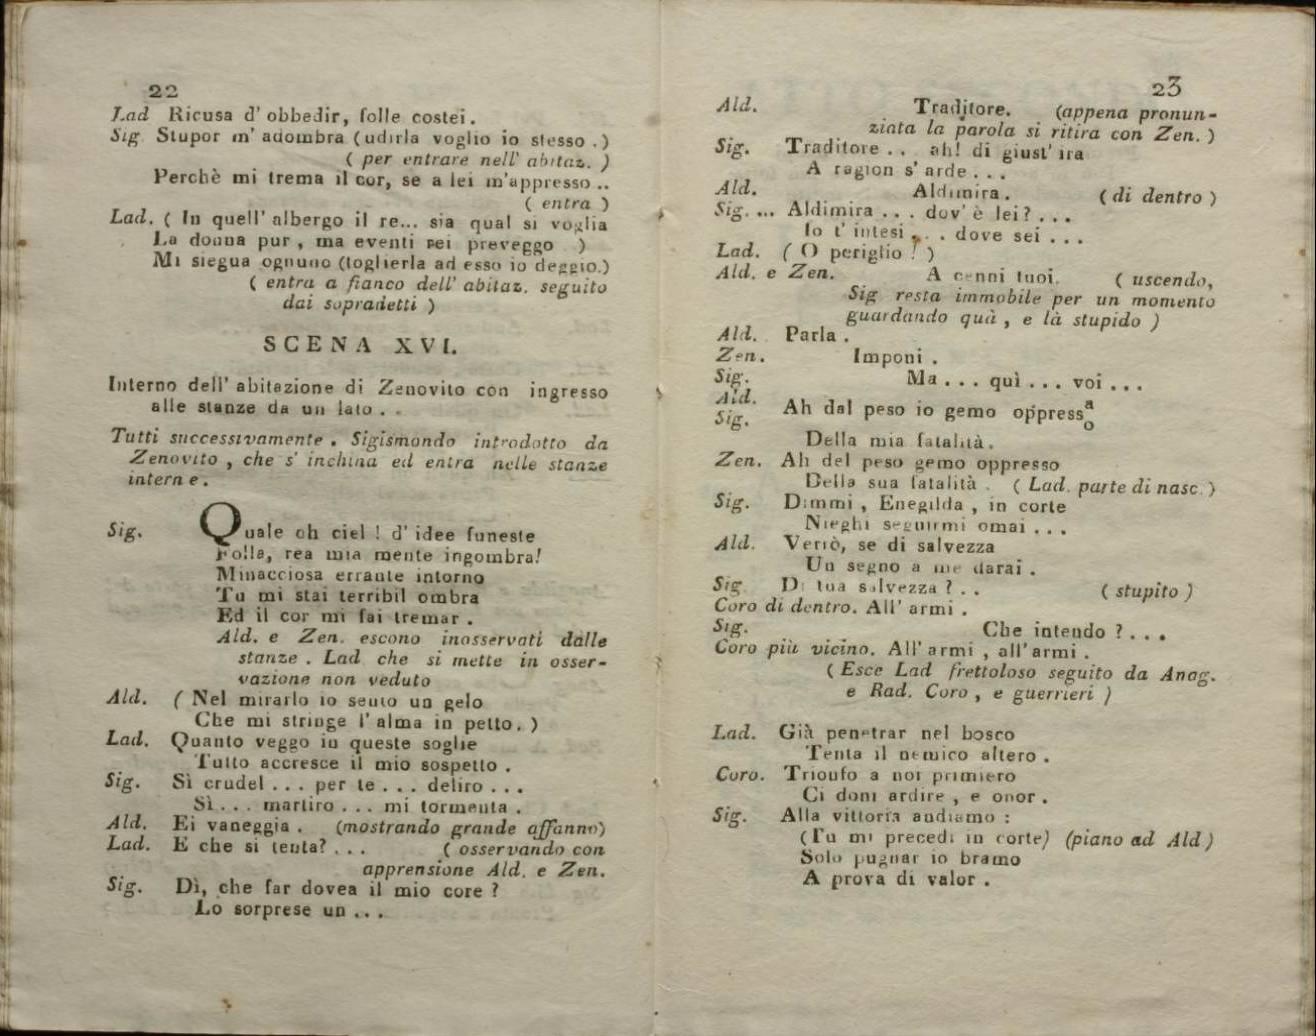 22
Lad Ricusa d' obbedir, folle costei.
Sig Stupor m' adombra (udirla voglio io stesso .)
( per entrare nell' abitaz. )
Perchè mi trema il cor, se a lei m'appresso ..
( entra )
Lad. ( In quell' albergo il re... sia qual si voglia
La donna pur , ma eventi rei preveggo )
Mi siegua ognuno (toglierla ad esso io deggio.)
( entra a fianco dell' abitaz. seguito
dai sopradetti )
SCENA XVI.
Interno dell' abitazione di Zenovito con ingresso
alle stanze da un lato . .
Tutti successivamente . Sigismondo introdotto da
Zenovito , che s' inchina ed entra nelle stanze
interne .
Sig. Quale oh ciel ! d' idee funeste
Folla, rea mia mente ingombra!
Minacciosa errante intorno
Tu mi stai terribil ombra
Ed il cor mi fai tremar .
Ald. e Zen. escono inosservati dalle
stanze . Lad che si mette in osser-
vazione non veduto
Ald. ( Nel mirarlo io sento un gelo
Che mi stringe l' alma in petto. )
Lad. Quanto veggo in queste soglie
Tutto accresce il mio sospetto .
Sig. Sì crudel . . . per te . . . deliro . . .
Sì . . . martiro . . . mi tormenta .
Ald. Ei vaneggia . (mostrando grande affanno)
Lad. E che si tenta? . . . ( osservando con
apprensione Ald. e Zen.
Sig. Dì, che far dovea il mio core ?
Lo sorprese un . . .
23
Ald. Traditore. (appena pronun-
ziata la parola si ritira con Zen. )
Sig. Traditore . . ah! di giust' ira
A ragion s' arde . . .
Ald. Aldimira . ( di dentro )
Sig. ... Aldimira . . . dov' è lei? . . .
Io t' intesi . . . dove sei . . .
Lad. ( O periglio ! )
Ald. e Zen. A cenni tuoi. ( uscendo,
Sig resta immobile per un momento
guardando quà , e là stupido )
Ald. Parla .
Zen. Imponi .
Sig. Ma . . . quì . . . voi . . .
Ald.
Sig. Ah dal peso io gemo oppress a o
Della mia fatalità.
Zen. Ah del peso gemo oppresso
Della sua fatalità . ( Lad. parte di nasc. )
Sig. Dimmi , Enegilda , in corte
Nieghi seguirmi omai . . .
Ald. Verrò, se di salvezza
Un segno a me darai .
Sig Di tua salvezza ? . . ( stupito )
Coro di dentro. All' armi .
Sig. Che intendo ? . . .
Coro più vicino. All' armi , all' armi .
( Esce Lad frettoloso seguito da Anag.
e Rad. Coro , e guerrieri )
Lad. Già penetrar nel bosco
Tenta il nemico altero .
Coro. Trionfo a noi primiero
Ci doni ardire , e onor .
Sig. Alla vittoria andiamo :
(Tu mi precedi in corte) (piano ad Ald )
Solo pugnar io bramo
A prova di valor .